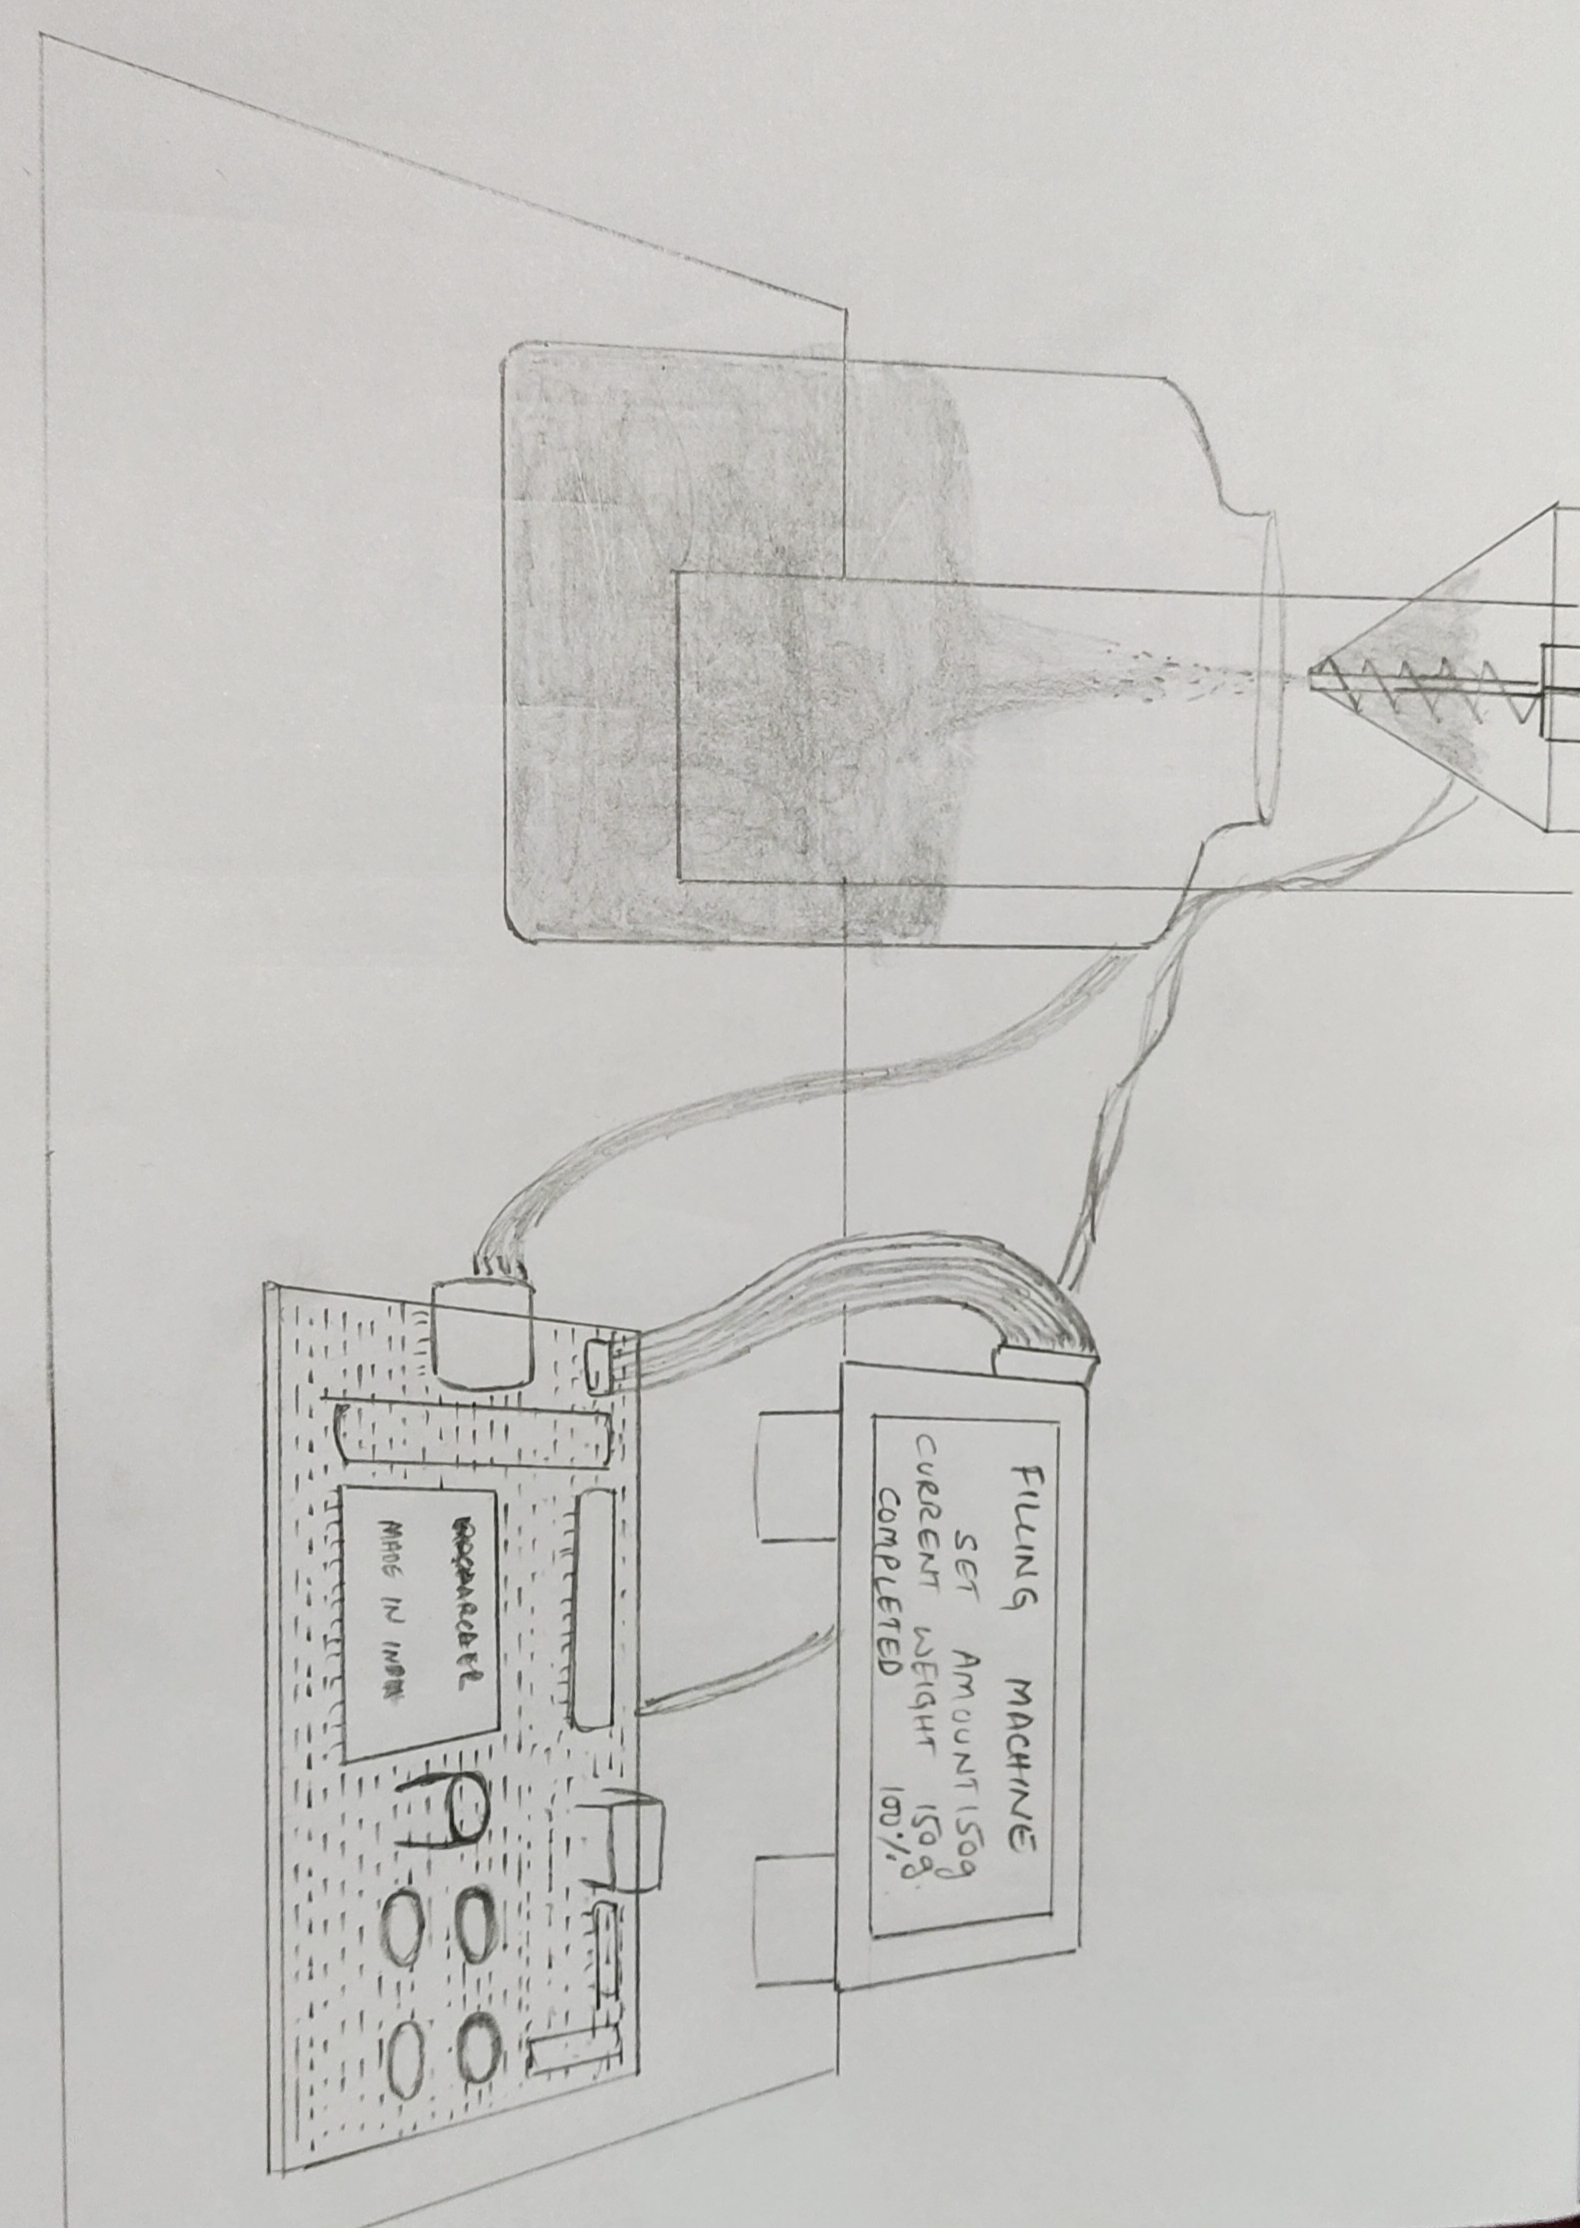 FILLING MACHINE
SET AMOUNT 150g
CURRENT WEIGHT 150g
COMPLETED 100%
MADE IN INDIA